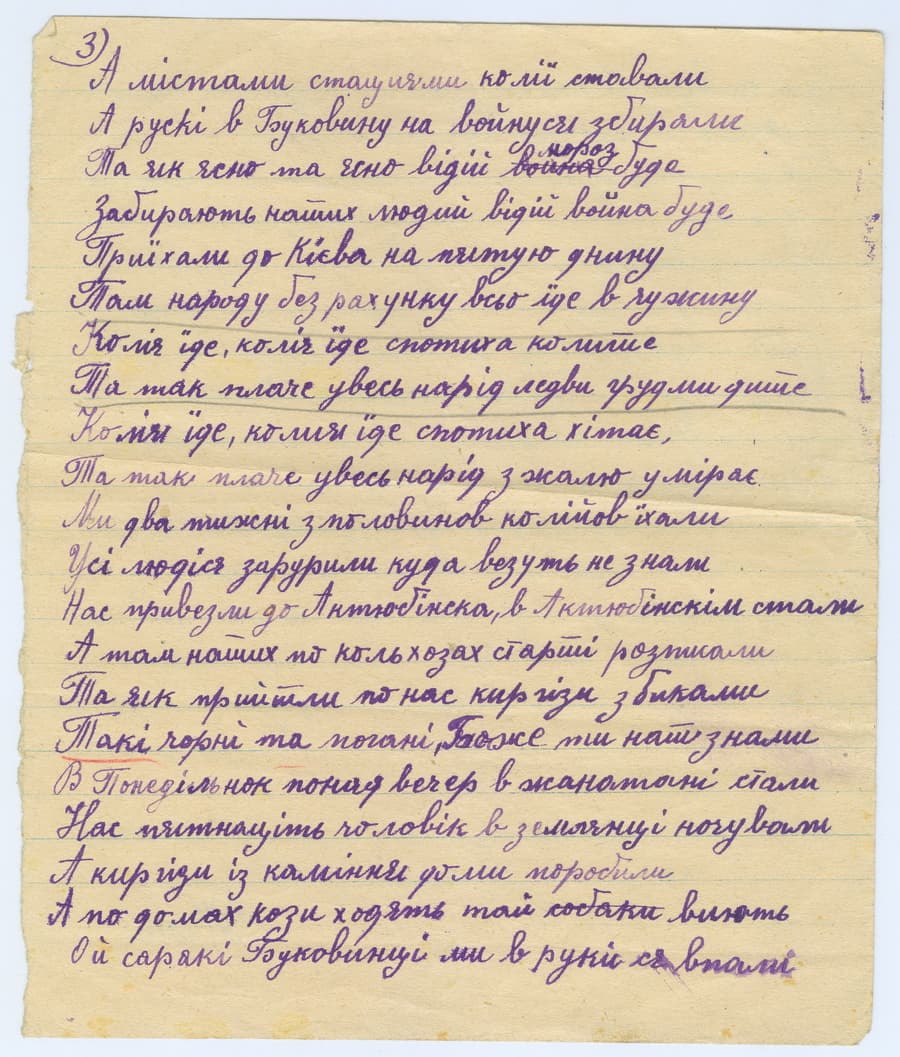 3)
А містами стациями колії ставали
А рускі в Буковину на войнуся збирали
мороз
Та як ясно та ясно відій война буде
Забирають наших людий відій война буде
Приїхали до Кієва на пятую днину
Там народу без рахунку всьо їде в чужину
Колія їде, колія їде спотиха колише
Та так плаче увесь нарід ледви грудми дише
Колия їде, колия їде спотиха хітає,
Та так плаче увесь нарід з жалю умірає
Ми два тижні з половинов колійов їхали
Усі людіся зарурили куда везуть не знали
Нас привезли до Актюбінска, в Актюбінскім стали
А там наших по кольхозах старші розписали
Та як прийшли по нас киргізи з биками
Такі чорні та погані, Боже ти наш з нами
В Понедільнок понад вечер в жанатані стали
Нас пятнаціть чоловік в землянці ночували
А киргізи із каміння доми поробили
А по домах кози ходять тай собаки виють
Ой саракі Буковинці ми в руки ся впали